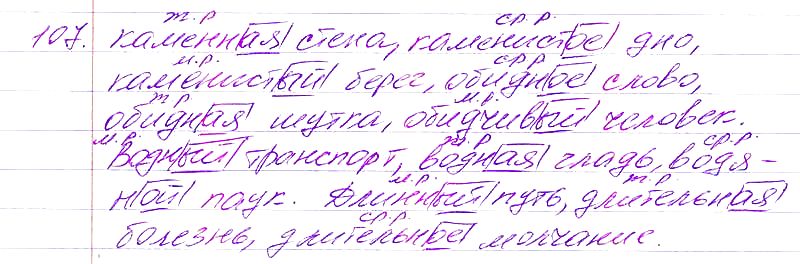 ж.р ср.р.
107. каменная стена, каменистое дно,
м.р. ср.р
каменистый берег, обидное слово,
ж.р м.р.
обидная шутка, обидчивый человек.
м.р. ж.р ср.р.
Водный транспорт, водная гладь, водя-
м.р. ж.р.
ной паук. Длинный путь, длительная
ср.р.
болезнь, длительное молчание.